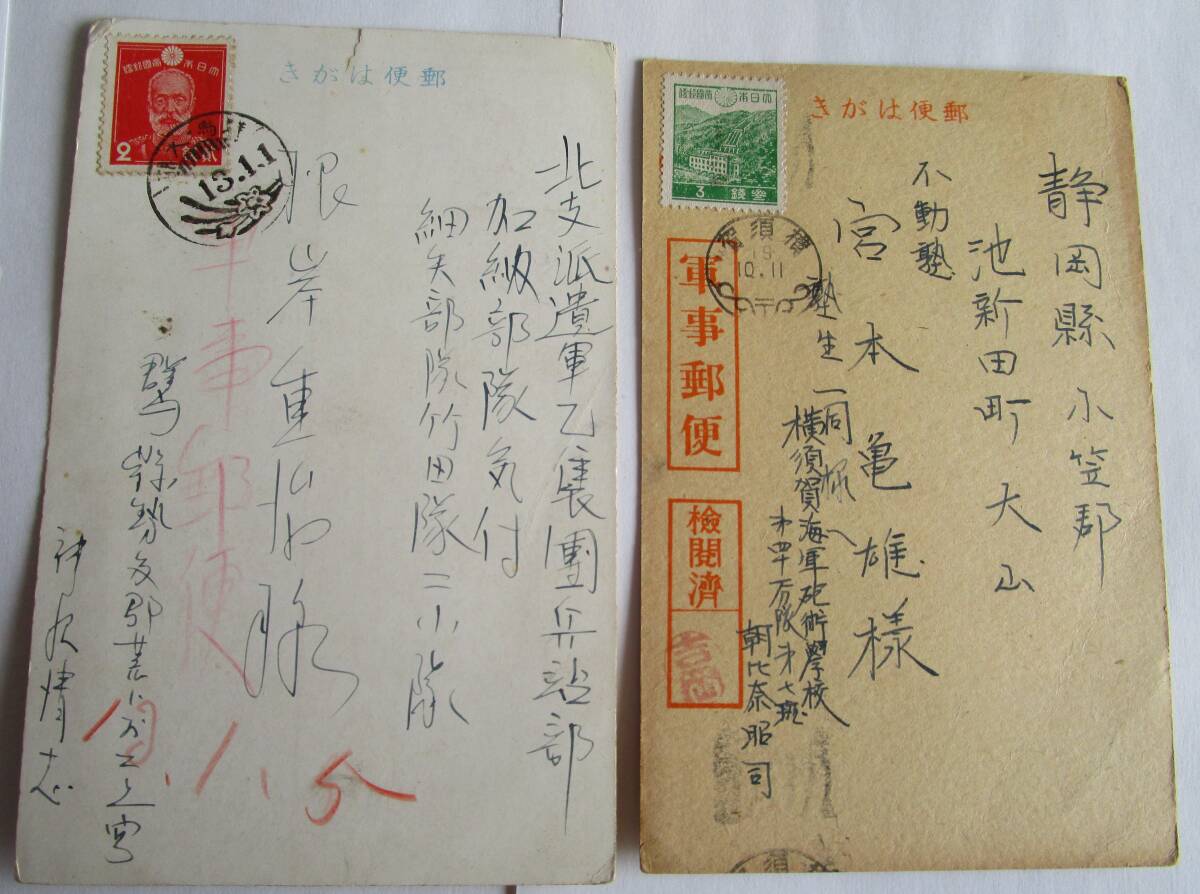 郵便はがき
大日本帝國郵便
2
13.1.1
北支派遣軍乙集團兵站部
加納部隊気付
細矢部隊竹田隊二小隊
根岸重治様
軍事郵便
群馬縣勢多郡
郵便はがき
大日本帝國郵便
3 参銭
横須賀
19
10.11
静岡縣小笠郡
池新田町大山
不動塾
宮本亀雄様
塾生一同様
軍事郵便
檢閲濟
吉岡
横須賀海軍砲術學校
才四十万隊才七班
朝比奈昭司